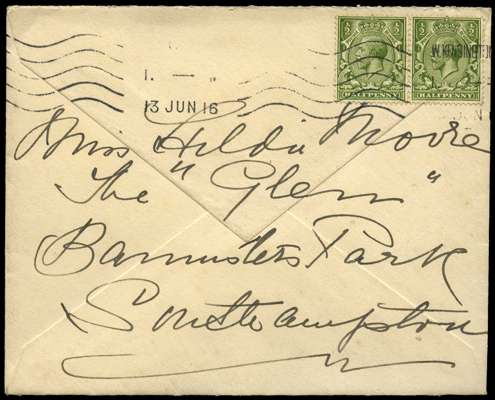 13 JUN 16
HALFPENNY
HALFPENNY
Miss Hilda Moore
The "Glen"
Bannisters Park
Southampton